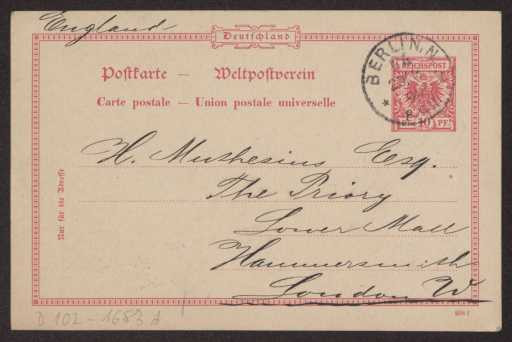 England
Deutschland
Postkarte — Weltpostverein
Carte postale — Union postale universelle
BERLIN, N.
REICHSPOST
10 PF.
H. Muthesius Esq.
The Priory
Lower Mall
Hammersmith
London W
Nur für die Adresse
D 102 - 1683 A